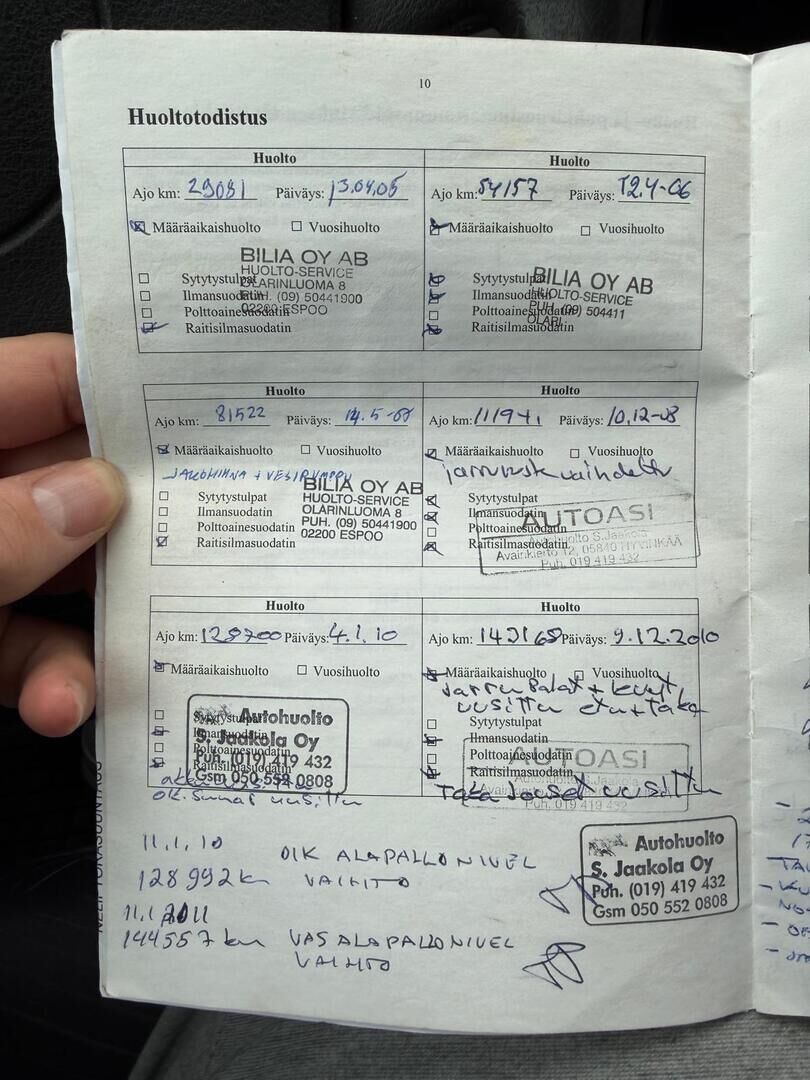 10
Huoltotodistus
Huolto
Ajo km: 29081 Päiväys: 13.04.05
Määräaikaishuolto Vuosihuolto
BILIA OY AB
HUOLTO-SERVICE
Sytytystulpat OLARINLUOMA 8
Ilmansuodatin PUH. (09) 50441900
Polttoainesuodatin 02200 ESPOO
Raitisilmasuodatin
Huolto
Ajo km: 54157 Päiväys: 12.4-06
Määräaikaishuolto Vuosihuolto
Sytytystulpat BILIA OY AB
Ilmansuodatin HUOLTO-SERVICE
Polttoainesuodatin PUH. (09) 504411
Raitisilmasuodatin
Huolto
Ajo km: 81522 Päiväys: 14.5-07
Määräaikaishuolto Vuosihuolto
JAKOHIHNA + VESIPUMPPU
BILIA OY AB
Sytytystulpat HUOLTO-SERVICE
Ilmansuodatin OLARINLUOMA 8
Polttoainesuodatin PUH. (09) 50441900
Raitisilmasuodatin 02200 ESPOO
Huolto
Ajo km: 111941 Päiväys: 10.12-08
Määräaikaishuolto Vuosihuolto
vaihdettu
Sytytystulpat
Ilmansuodatin AUTOASI
Polttoainesuodatin Autohuolto S.Jaakola
Raitisilmasuodatin Avainkierto 12, 05840 HYVINKÄÄ
Puh. 019 419 432
Huolto
Ajo km: 128700 Päiväys: 4.1.10
Määräaikaishuolto Vuosihuolto
Sytytystulpat Autohuolto
Ilmansuodatin S. Jaakola Oy
Polttoainesuodatin Puh. (019) 419 432
Raitisilmasuodatin Gsm 050 552 0808
uusittu
Huolto
Ajo km: 143168 Päiväys: 9.12.2010
Määräaikaishuolto Vuosihuolto
Jarrupalat + levyt
uusittu etu + taka
Sytytystulpat
Ilmansuodatin AUTOASI
Polttoainesuodatin
Raitisilmasuodatin
Taka jouset uusittu
Puh. 019 419 432
11.1.10 OIK ALAPALLONIVEL
128992km VAIHTO
Autohuolto
S. Jaakola Oy
Puh. (019) 419 432
Gsm 050 552 0808
11.1.2011
144557km VAS ALAPALLONIVEL
VAIHTO